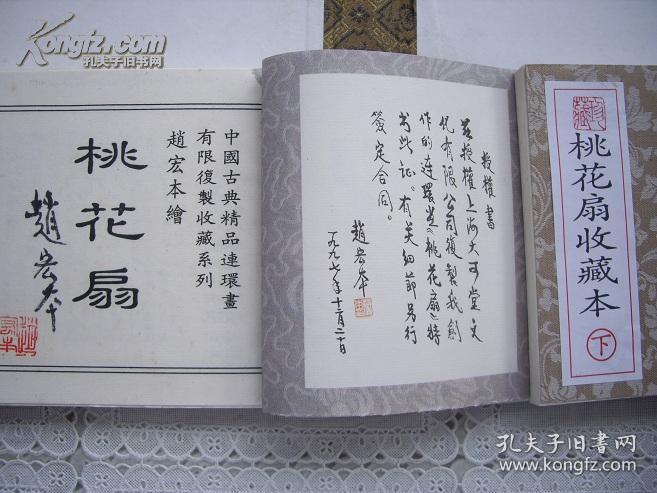 Kongfz.com
孔夫子旧书网
中國古典精品連環畫
有限復製收藏系列
趙宏本繪
桃花扇
趙宏本
授權書
兹授權上海大可堂文
化有限公司復製我創
作的连環画《桃花扇》特
书此证。有关细節另行
簽定合同。
趙宏本
一九九七年十二月二十日
珍藏
桃花扇收藏本
下
孔夫子旧书网
www.kongfz.com